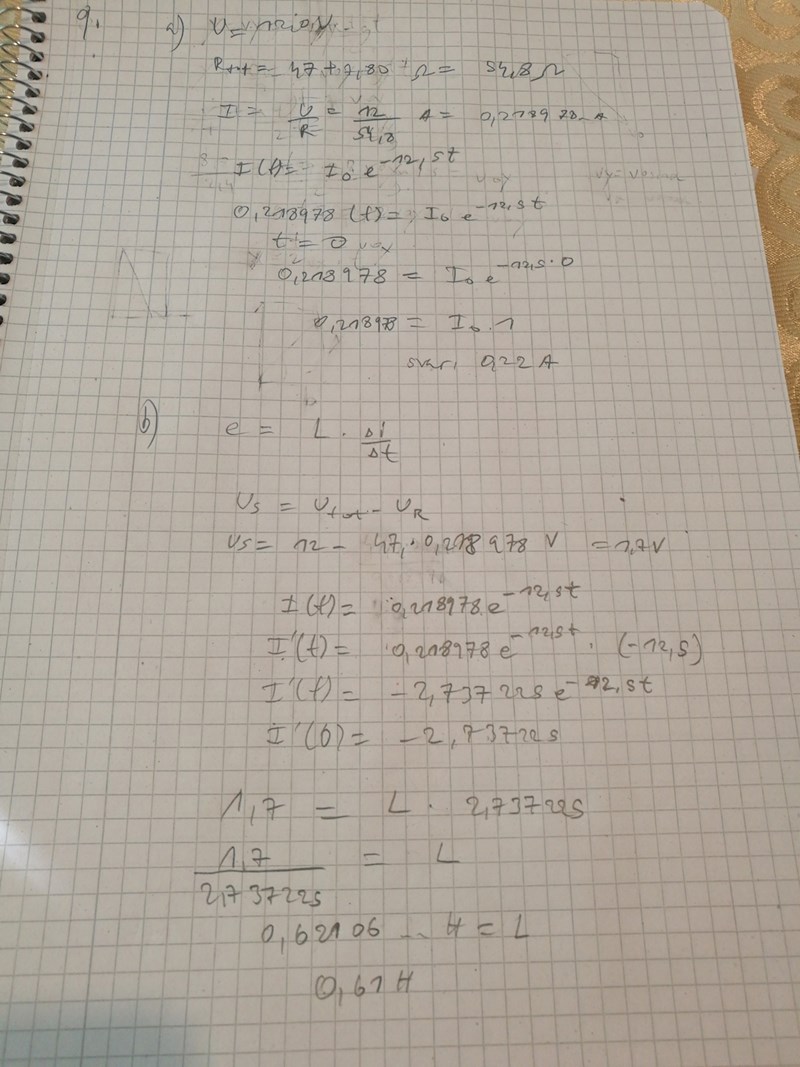 9.
a)
R tot = 47 + 7,80 Ω = 54,8 Ω
I = U/R = 12/54,8 A = 0,218978 A
I(t) = I₀ e^-12,5t
0,218978 (t) = I₀ e^-12,5t
t = 0
0,218978 = I₀ e^-12,5·0
0,218978 = I₀ · 1
svar: 0,22 A
b) e = L · Δi/Δt
Us = Utot - UR
Us = 12 - 47 · 0,218978 V = 1,7V
I(t) = 0,218978 e^-12,5t
I'(t) = 0,218978 e^-12,5t · (-12,5)
I'(t) = -2,737225 e^-12,5t
I'(0) = -2,737225
1,7 = L · 2,737225
1,7/2,737225 = L
0,62106 ... H = L
0,61 H